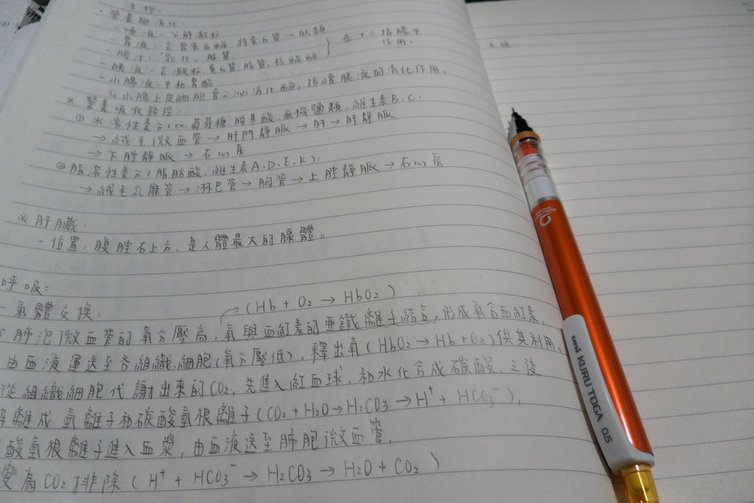 營養與消化:
- 唾液: 分解澱粉
- 胃液: 含胃蛋白酶, 將蛋白質→胜類
- 膽汁: 乳化 脂質
- 胰液: 含澱粉.蛋白質.脂質.核酸酶
在十二指腸生作用。
- 小腸液: 中和胃酸
↳小腸上皮細胞會分泌消化酶, 接續胰液的消化作用。
※ 營養吸收路徑:
① 水溶性養分(ex.葡萄糖.胺基酸.無機鹽類.維生素B.C.
→絨毛微血管→肝門靜脈→肝→肝靜脈
→下腔靜脈→右心房
② 脂溶性養分(脂肪酸.維生素A.D.E.K).
→絨毛乳糜管→淋巴管→胸管→上腔靜脈→右心房
※ 肝臟:
- 位置: 腹腔右上方, 是人體最大的腺體。
呼吸:
- 氣體交換:
(Hb + O₂ → HbO₂)
肺泡微血管的氧分壓高, 氧與血紅素的亞鐵離子結合, 形成氧合血紅素,
由血液運送至各組織細胞(氧分壓低), 釋出氧(HbO₂→Hb+O₂)供其利用。
從組織細胞代謝出來的CO₂, 先進入紅血球, 和水化合成碳酸, 之後
離成氫離子和碳酸氫根離子(CO₂+H₂O→H₂CO₃→H⁺+HCO₃⁻),
酸氫根離子進入血漿, 由血液送至肺胞微血管,
變為CO₂排除(H⁺+HCO₃⁻→H₂CO₃→H₂O+CO₂)
uni KURU TOGA 0.5